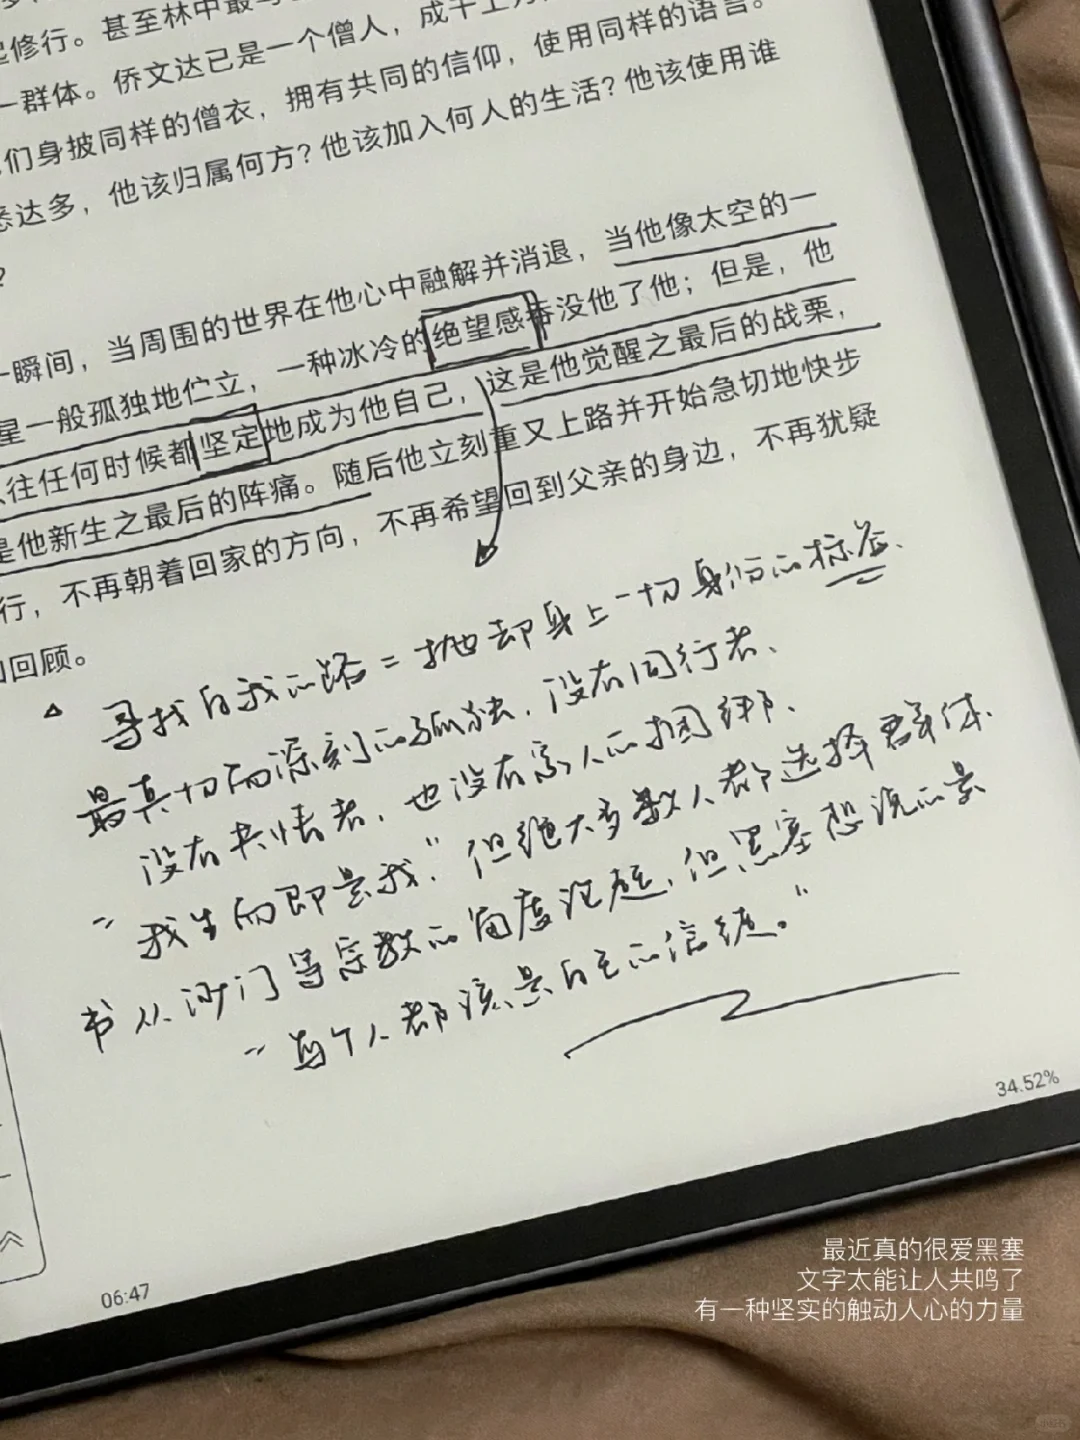 起修行。甚至林中最
一群体。侨文达已是一个僧人，成千上万
们身披同样的僧衣，拥有共同的信仰，使用同样的语言。
悉达多，他该归属何方？他该加入何人的生活？他该使用谁
？
一瞬间，当周围的世界在他心中融解并消退，当他像太空的一
星一般孤独地伫立，一种冰冷的绝望感吞没他了他；但是，他
往任何时候都坚定地成为他自己，这是他觉醒之最后的战栗，
是他新生之最后的阵痛。随后他立刻重又上路并开始急切地快步
行，不再朝着回家的方向，不再希望回到父亲的身边，不再犹疑
回顾。
△ 寻找自我的路=抛却身上一切身份的标签、
最真切而深刻的孤独，没有同行者、
没有共情者，也没有家人的捆绑、
"我生而即是我"但绝大多数人都选择群体.
书从沙门等宗教的角度说起，但黑塞想说的是
"每个人都该是自己的信徒。"
34.52%
06:47
最近真的很爱黑塞
文字太能让人共鸣了
有一种坚实的触动人心的力量
小红书